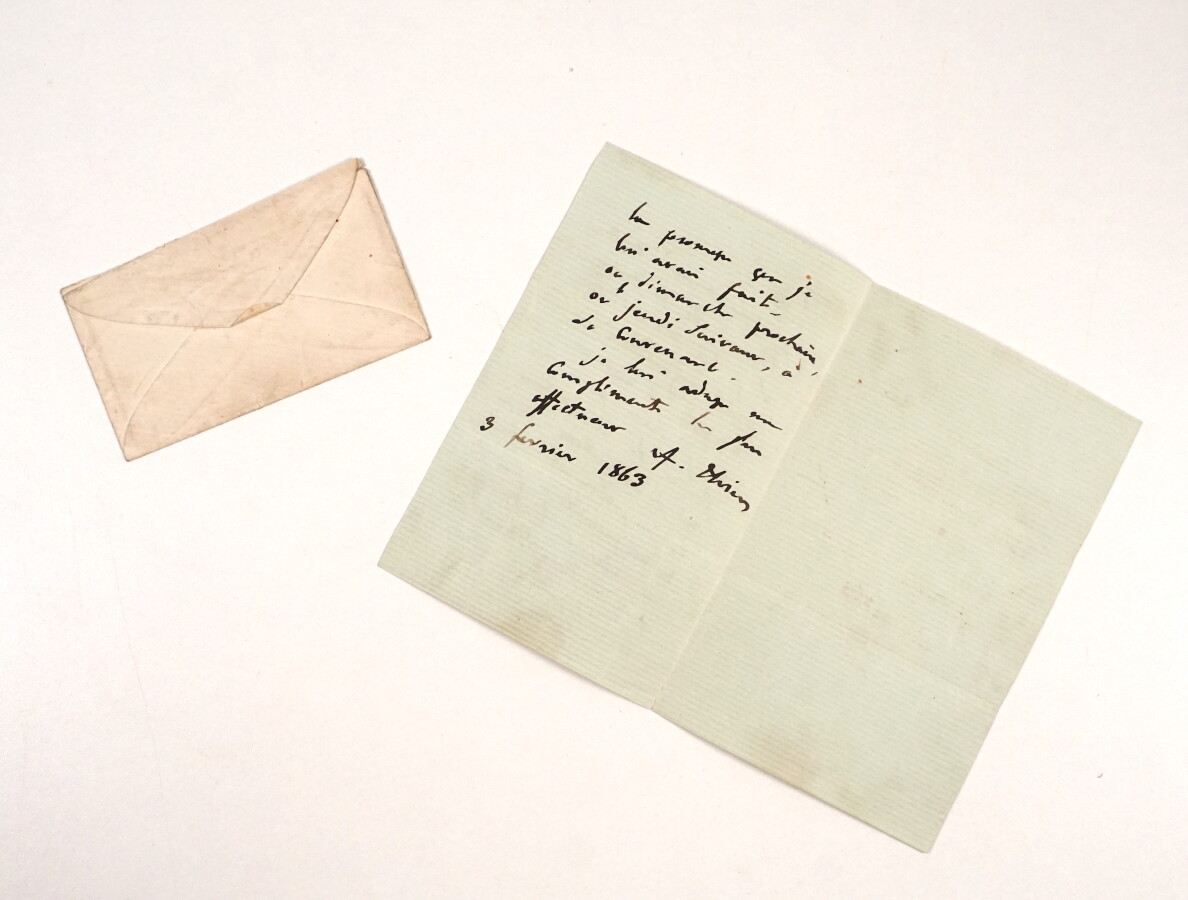 la promesse que je
lui avais faite
ou dimanche prochain,
ou jeudi suivant, à
sa convenance.
je lui adresse mes
compliments les plus
affectueux A. Thiers
3 fevrier 1863